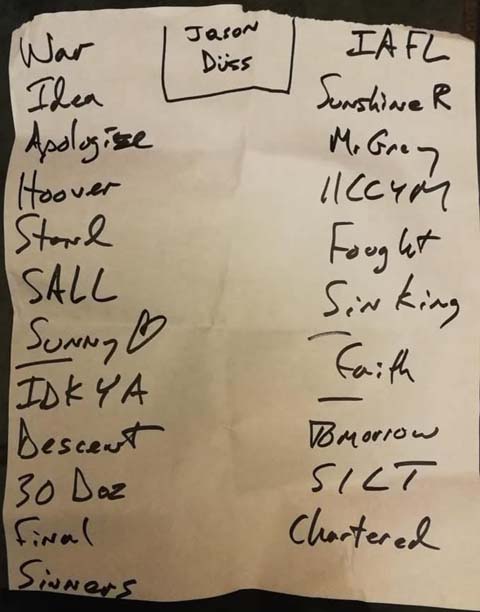 Jason
Düss
War
Idea
Apologize
Hoover
Stand
SALL
Sunny
IDKYA
Descent
30 Doz
Final
Sinners
IAFL
Sunshine R
Mr Grey
IICCYM
Fought
Sin King
Faith
Tomorrow
SILT
Chartered